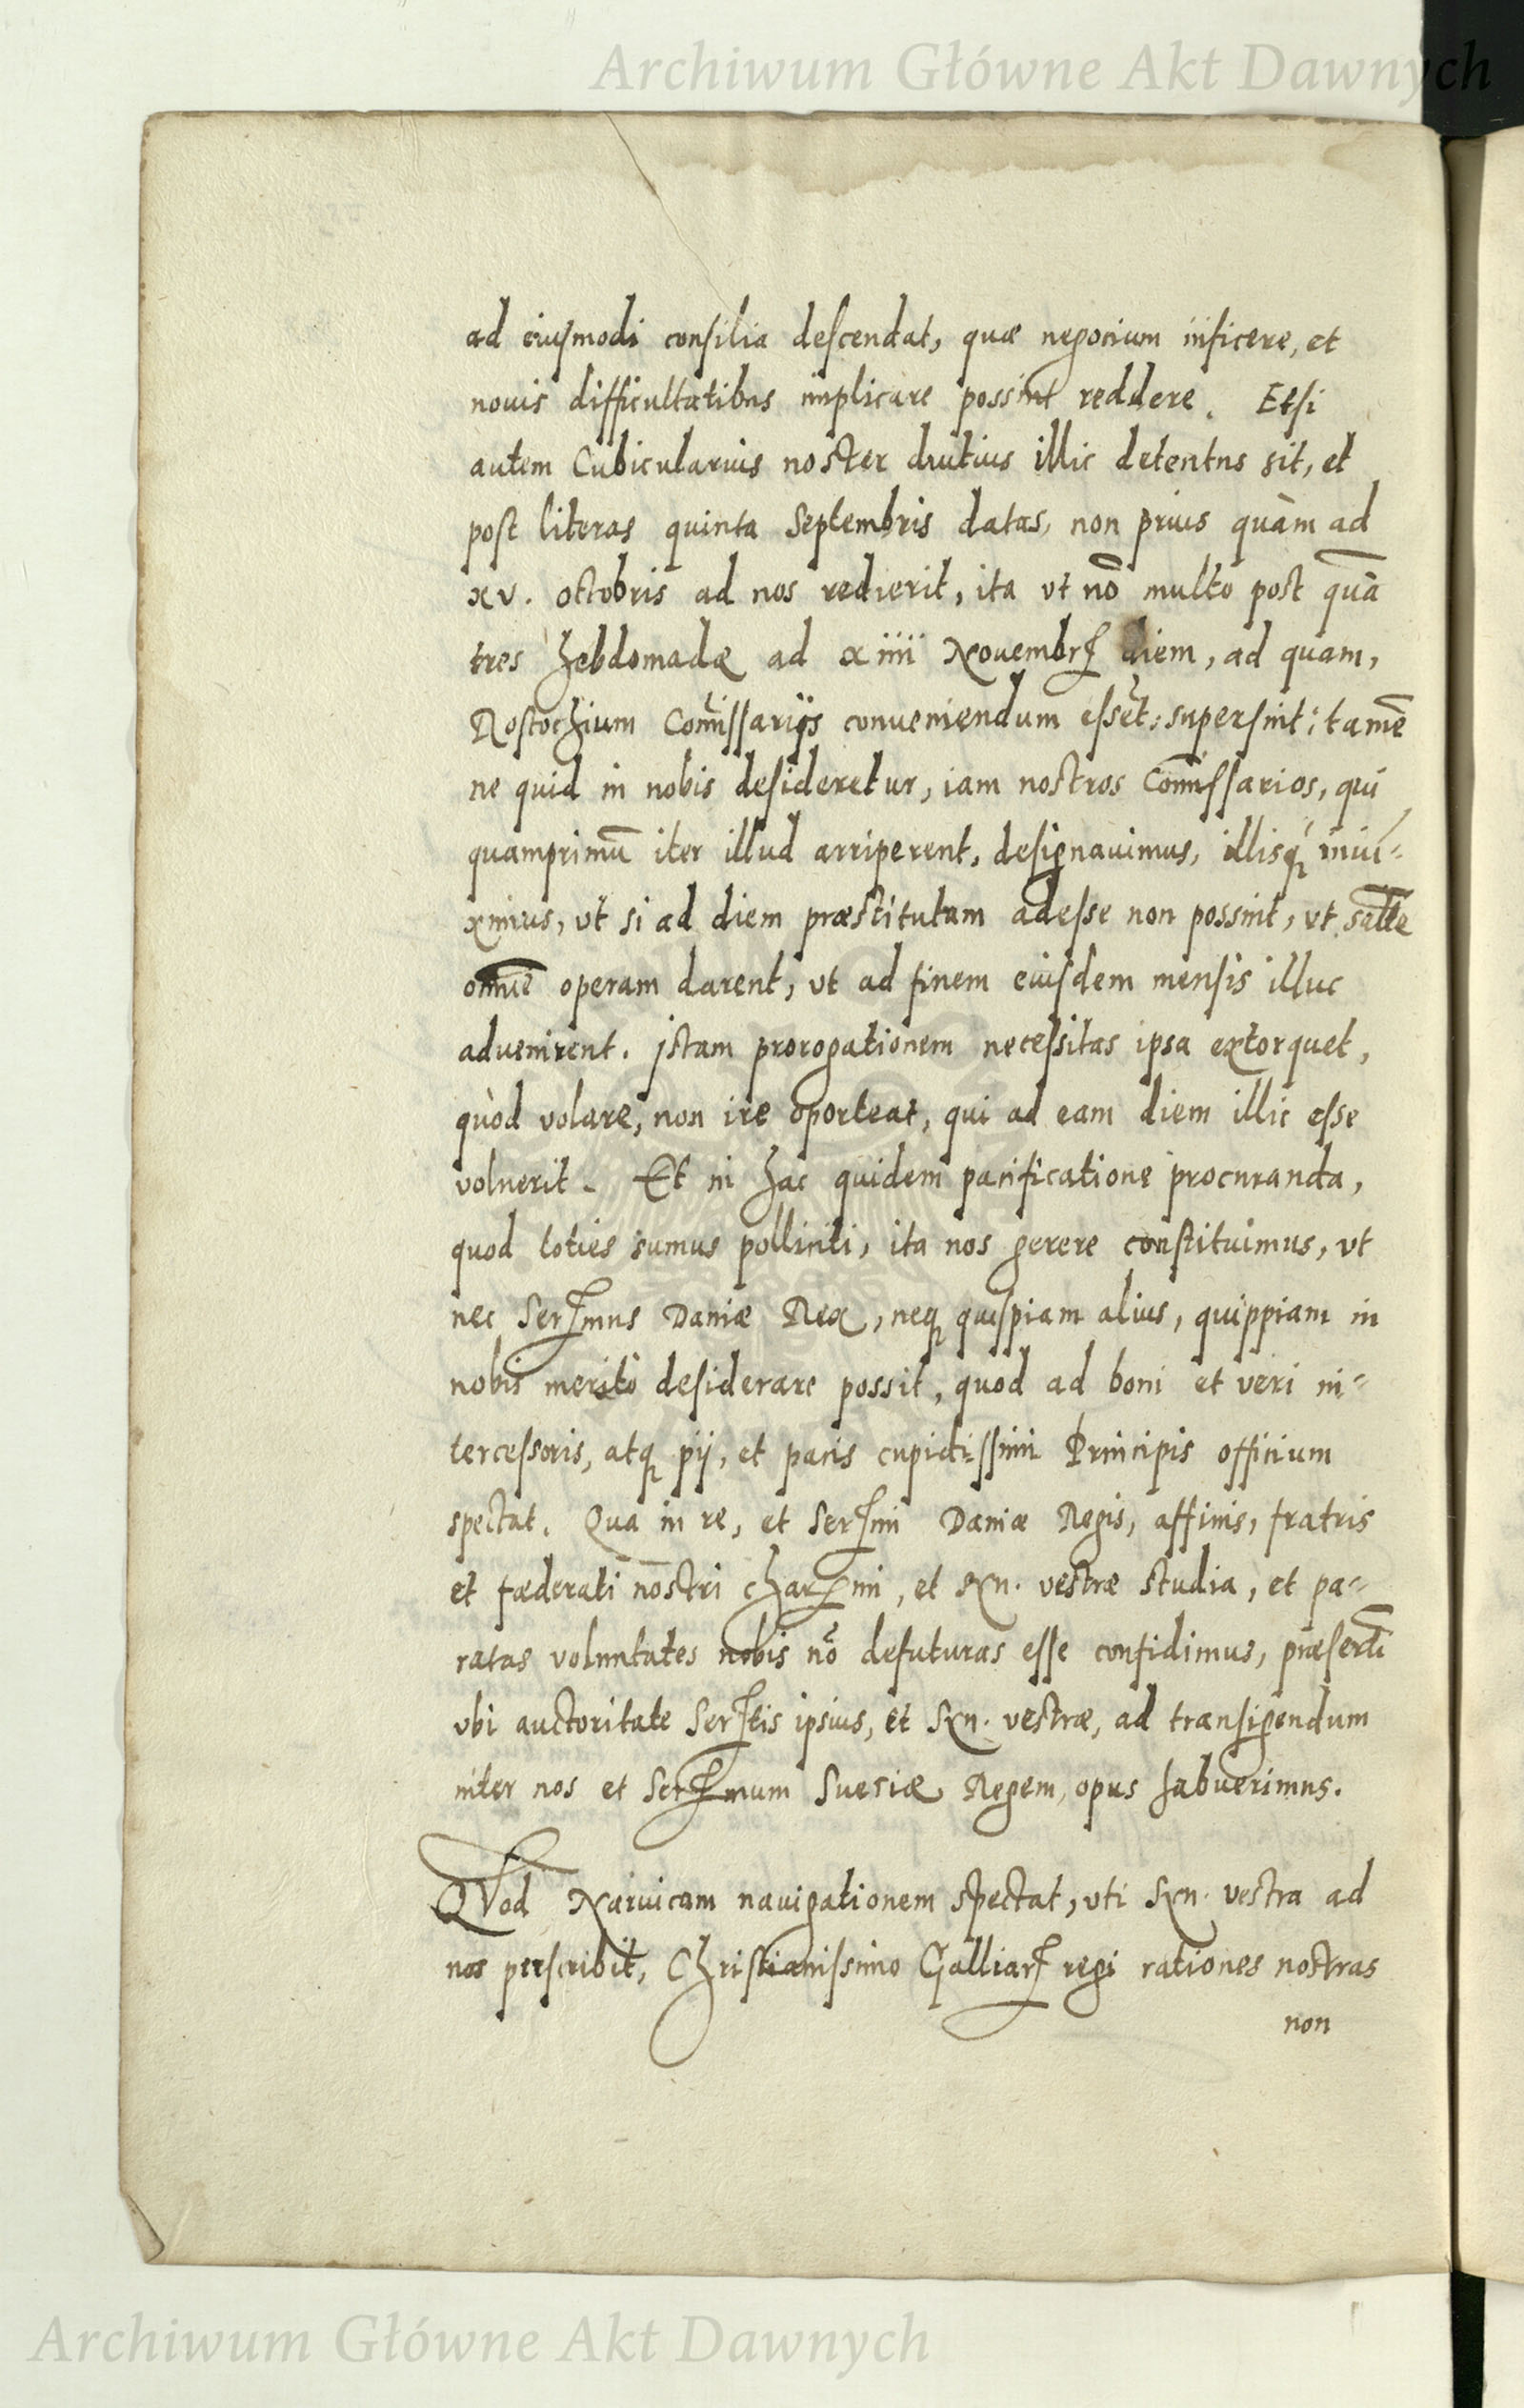 Archiwum Główne Akt Dawnych
ad eiusmodi consilia descendat, quæ negocium inficere, et
nouis difficultatibus implicare possint reddere. Etsi
autem Cubicularius noster diutius illic detentus sit, et
post literas quinta Septembris datas, non prius quàm ad
xv. octobris ad nos redierit, ita vt nō multo post quā
tres hebdomadæ ad xiiii Nouembrꝭ diem, ad quam,
Rostochium Com̄issarijs conueniendum essēt, supersint: tamē
ne quid in nobis desideretur, iam nostros Com̄issarios, qui
quamprimū iter illud arriperent, designauimus, illisqꝫ iniū-
ximus, vt si ad diem præstitutam adesse non possint, vt saltē
omnē operam darent, vt ad finem eiusdem mensis illuc
aduenirent. jstam prorogationem necessitas ipsa extorquet,
quòd volare, non ire oporteat, qui ad eam diem illic esse
voluerit. Et in hac quidem pacificatione procuranda,
quod toties sumus polliciti, ita nos gerere constituimus, vt
nec Serꝭmus Daniæ Rex, neqꝫ quispiam alius, quippiam in
nobis meritò desiderare possit, quod ad boni et veri in-
tercessoris, atqꝫ pij, et pacis cupidissimi Principis officium
spectat. Qua in re, et Serꝭmi Daniæ Regis, affinis, fratris
et fœderati nostri charꝭmi, et Sxn. vestræ studia, et pa-
ratas voluntates nobis nō defuturas esse confidimus, præsertī
vbi auctoritate Serꝭtis ipsius, et Sxn. vestræ, ad transigendum
inter nos et Serꝭmum Sueciæ Regem, opus habuerimus.
QVod Naruicam nauigationem spectat, vti Sxn. vestra ad
nos perscribit, Christianissimo Galliarꝭ regi rationes nostras
non
Archiwum Główne Akt Dawnych